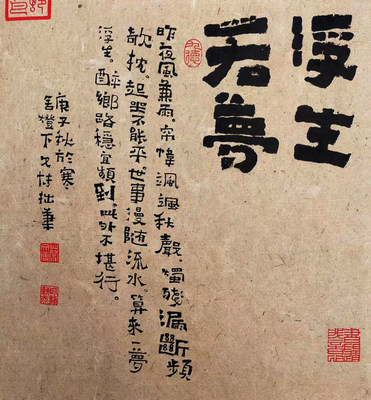 浮生
若夢
昨夜風兼雨，帘幃颯颯秋聲，燭殘漏斷頻
欹枕。起坐不能平世事漫隨流水。算來一夢
浮生。醉鄉路穩宜頻到，此外不堪行。
庚子秋於寒
舍燈下村拙筆